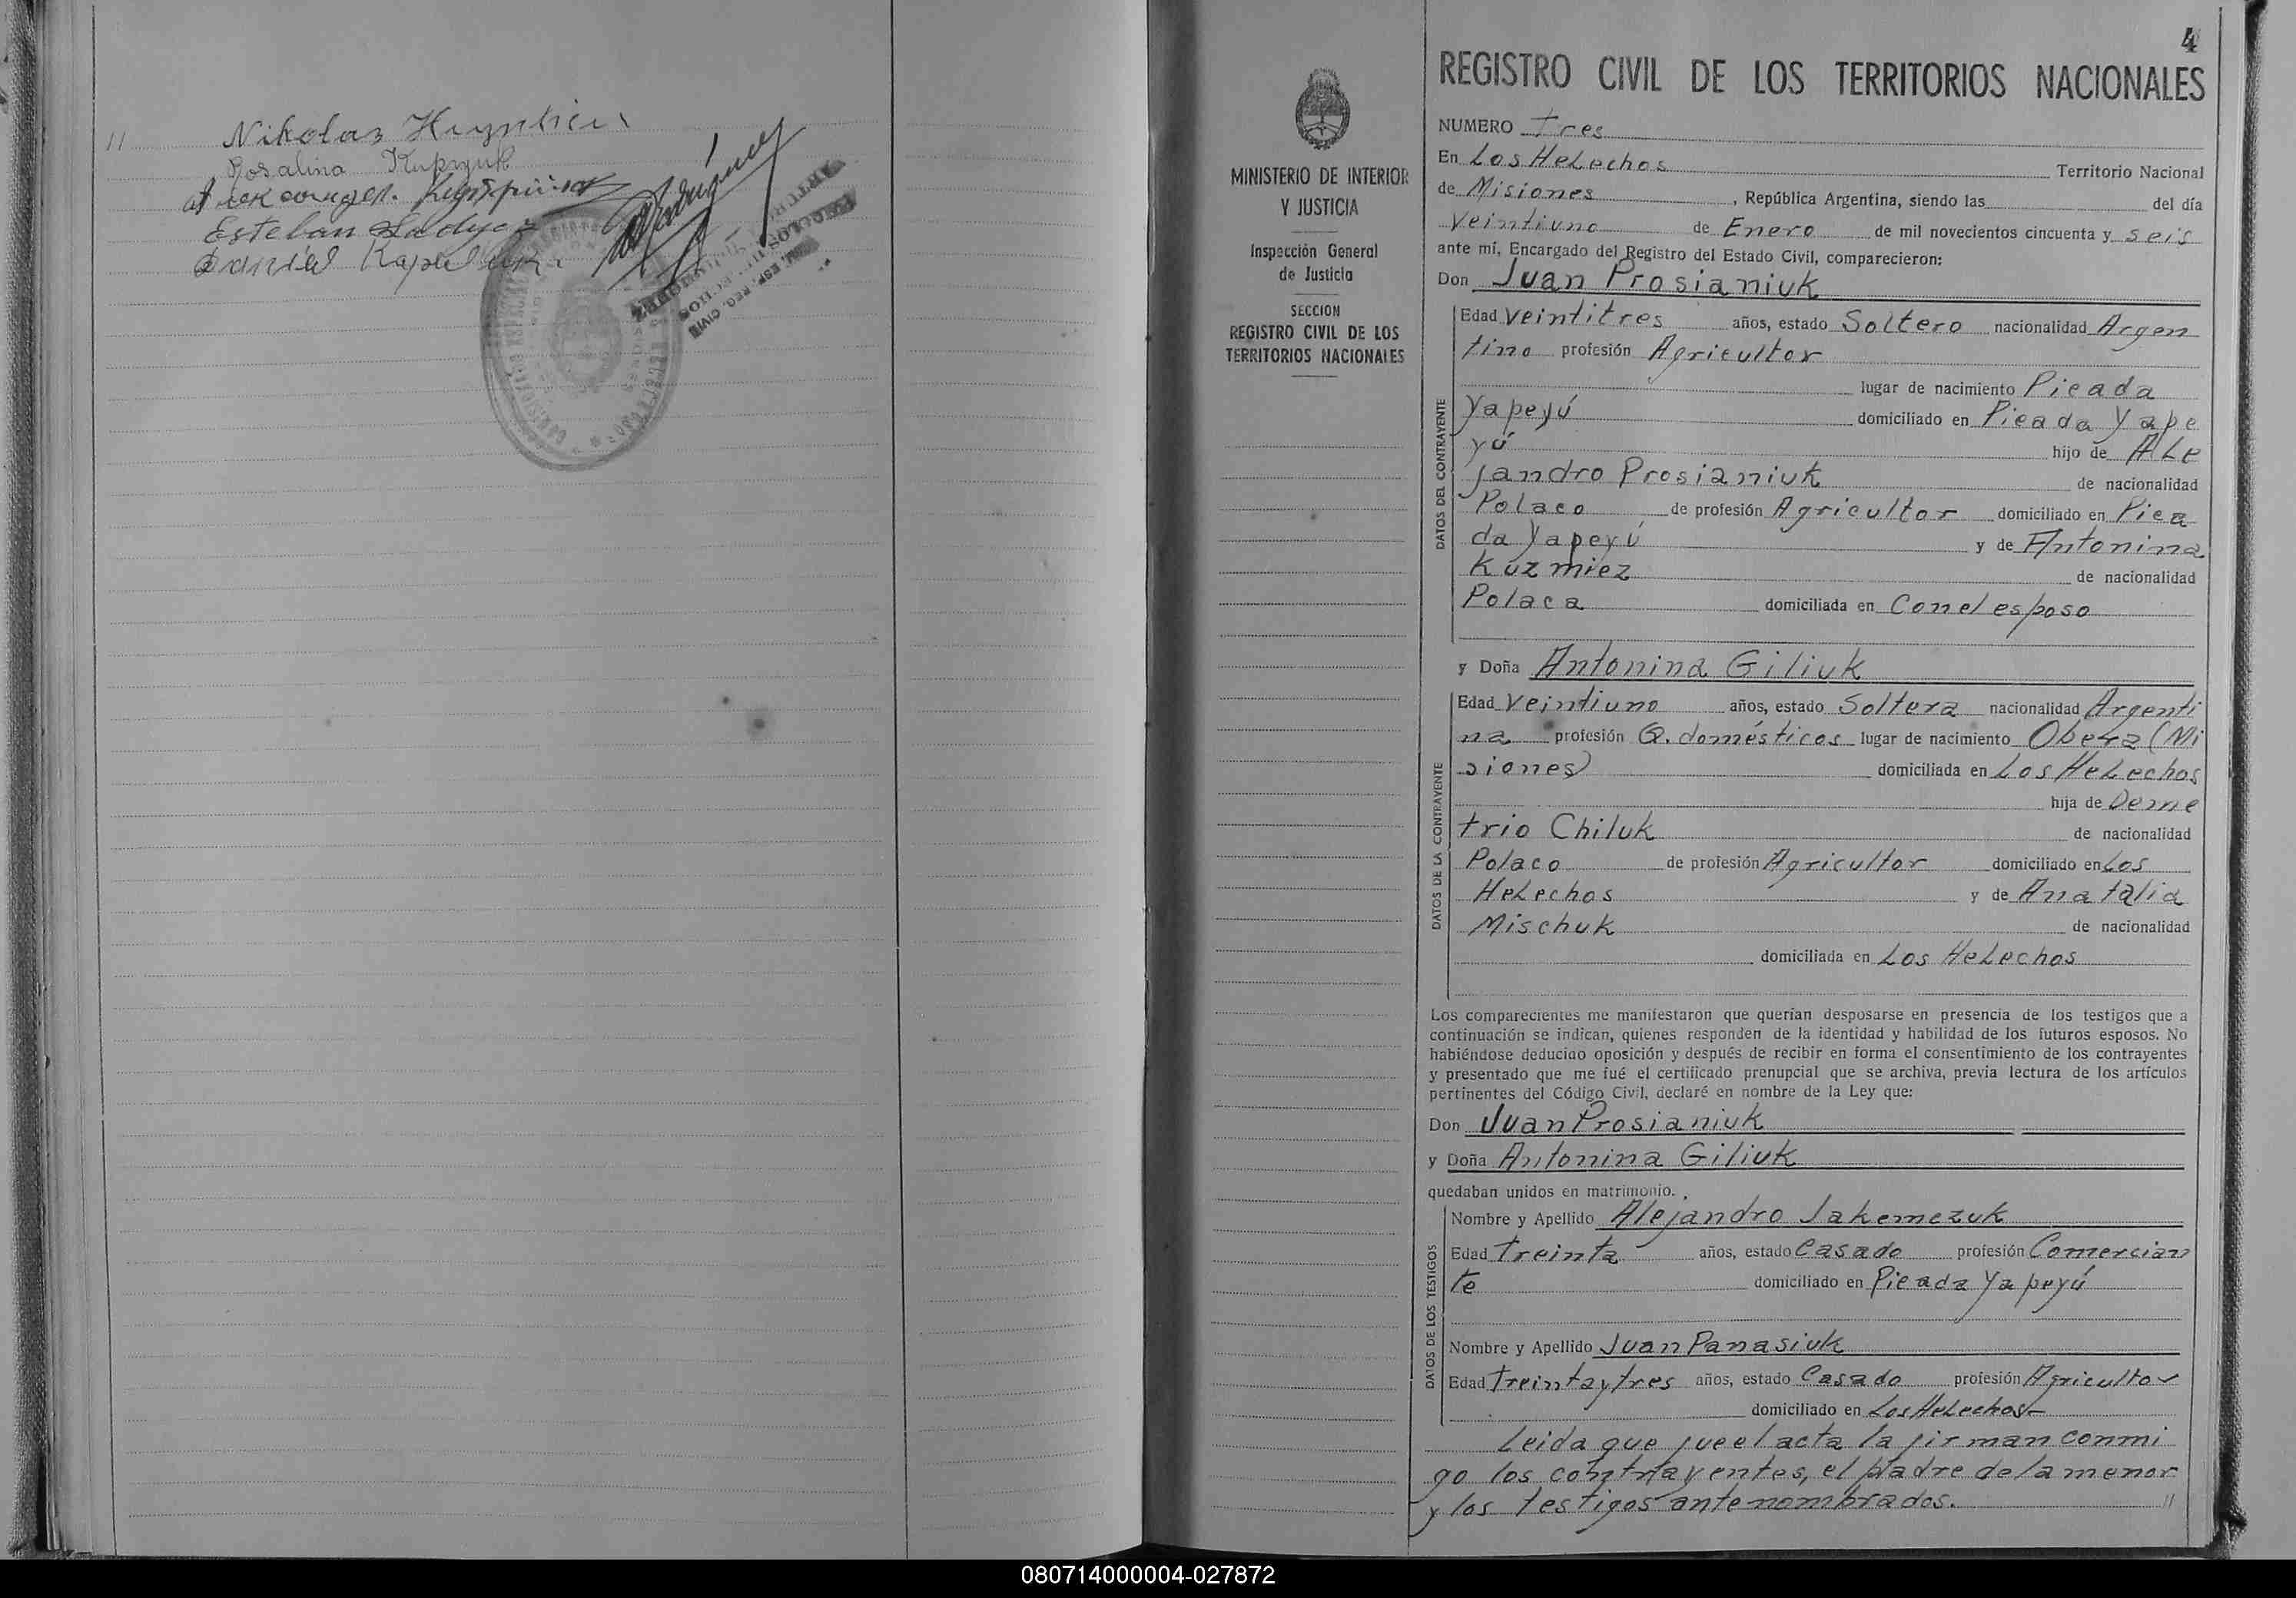 //
Nikolaz
Rosalina
Esteban
Daniel
4
REGISTRO CIVIL DE LOS TERRITORIOS NACIONALES
MINISTERIO DE INTERIOR
Y JUSTICIA
Inspección General
de Justicia
SECCION
REGISTRO CIVIL DE LOS
TERRITORIOS NACIONALES
NUMERO Tres
En Los Helechos Territorio Nacional
de Misiones, República Argentina, siendo las del día
Veintiuno de Enero de mil novecientos cincuenta y seis
ante mí, Encargado del Registro del Estado Civil, comparecieron:
Don Juan Prosianiuk
DATOS DEL CONTRAYENTE
Edad Veintitres años, estado Soltero nacionalidad Argen
tino profesión Agricultor
lugar de nacimiento Picada
Yapeyú domiciliado en Picada Yape
yú hijo de Ale
jandro Prosianiuk de nacionalidad
Polaco de profesión Agricultor domiciliado en Pica
da Yapeyú y de Antonina
Kuzmiez de nacionalidad
Polaca domiciliada en Con el esposo
y Doña Antonina Giliuk
DATOS DE LA CONTRAYENTE
Edad Veintiuno años, estado Soltera nacionalidad Argenti
na profesión Q. domésticos lugar de nacimiento Oberá (Mi
siones) domiciliada en Los Helechos
hija de Deme
trio Chiluk de nacionalidad
Polaco de profesión Agricultor domiciliado en Los
Helechos y de Anatalia
Mischuk de nacionalidad
domiciliada en Los Helechos
Los comparecientes me manifestaron que querían desposarse en presencia de los testigos que a
continuación se indican, quienes responden de la identidad y habilidad de los futuros esposos. No
habiéndose deducido oposición y después de recibir en forma el consentimiento de los contrayentes
y presentado que me fué el certificado prenupcial que se archiva, previa lectura de los artículos
pertinentes del Código Civil, declaré en nombre de la Ley que:
Don Juan Prosianiuk
y Doña Antonina Giliuk
quedaban unidos en matrimonio.
DATOS DE LOS TESTIGOS
Nombre y Apellido Alejandro Jakemczuk
Edad Treinta años, estado Casado profesión Comercian
te domiciliado en Picada Yapeyú
Nombre y Apellido Juan Panasiuk
Edad Treinta y tres años, estado Casado profesión Agricultor
domiciliado en Los Helechos
Leida que fue el acta la firman conmi
go los contrayentes, el padre de la menor
y los testigos antenombrados. //
080714000004-027872